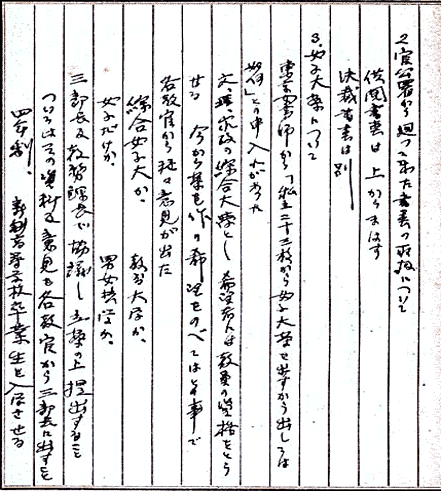 2. 官公署から廻って来た書表の取扱について
供閲書表は上からまはす
決裁書表は別
3. 女子大案について
東京 から「私立二十三校から女子大案を出すから出しては
如何」との申入れがあった
文、理、家政の綜合大案とし 希望者には教員の資格をとら
せる 今から案を作り希望をのべては 事で
各教官から種々意見が出た
綜合女子大か、 教育大学か、
女子だけか、 男女共学か、
三部長及教務課長で協議し立案の上提出すること
ついてはその資料及意見を各教官から三部長に出すこと
四年制、 新制高等学校卒業生を入学させる